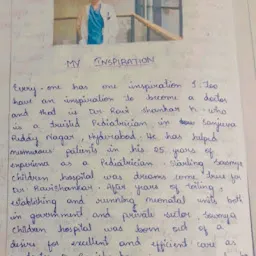 MY INSPIRATION
Every-one has one inspiration I too
have an inspiration to become a doctor
and that is Dr Ravi Shankar K who
is a Pediatrician in Sanjeeva
Reddy Nagar, Hyderabad. He has helped
numerous patients in his 25 years of
experience as a Pediatrician. Starting Sowmya
Children hospital was dreams come true for
Dr Ravishankar. After years of toiling,
establishing and running neonatal units both
in government and private sector. Sowmya
Children hospital was born out of a
desire for excellent and efficient care as